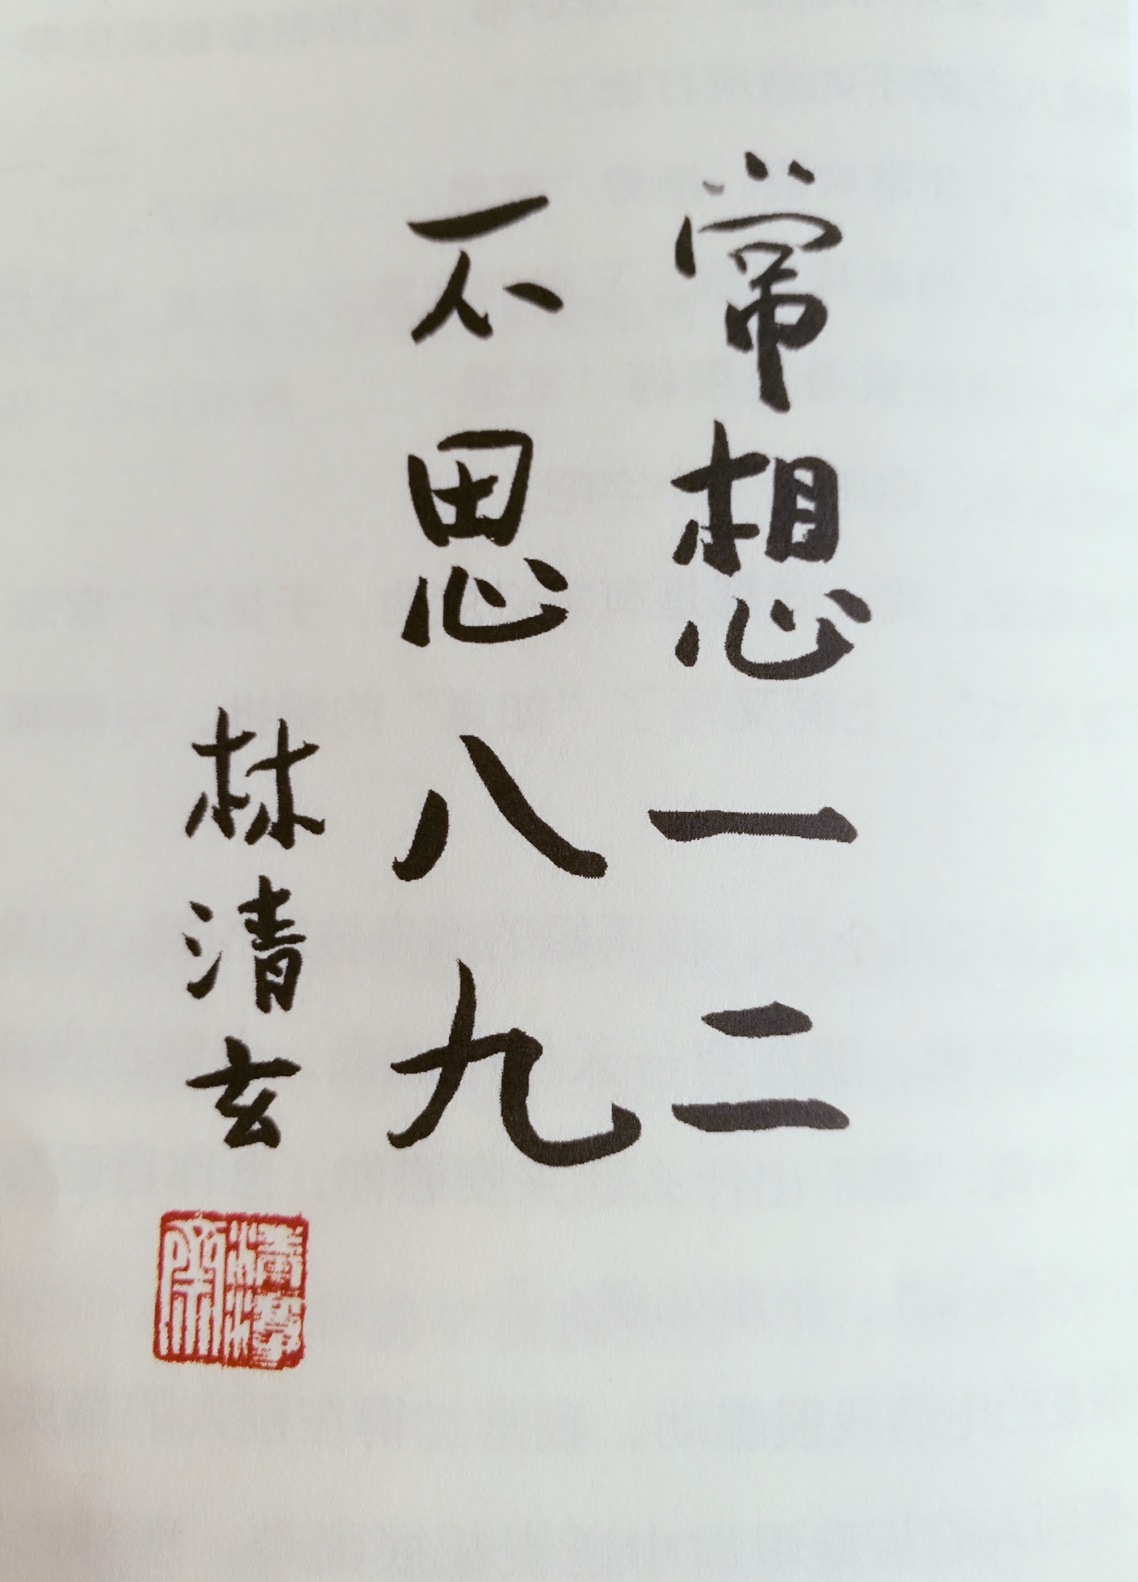 常想一二
不思八九
林清玄